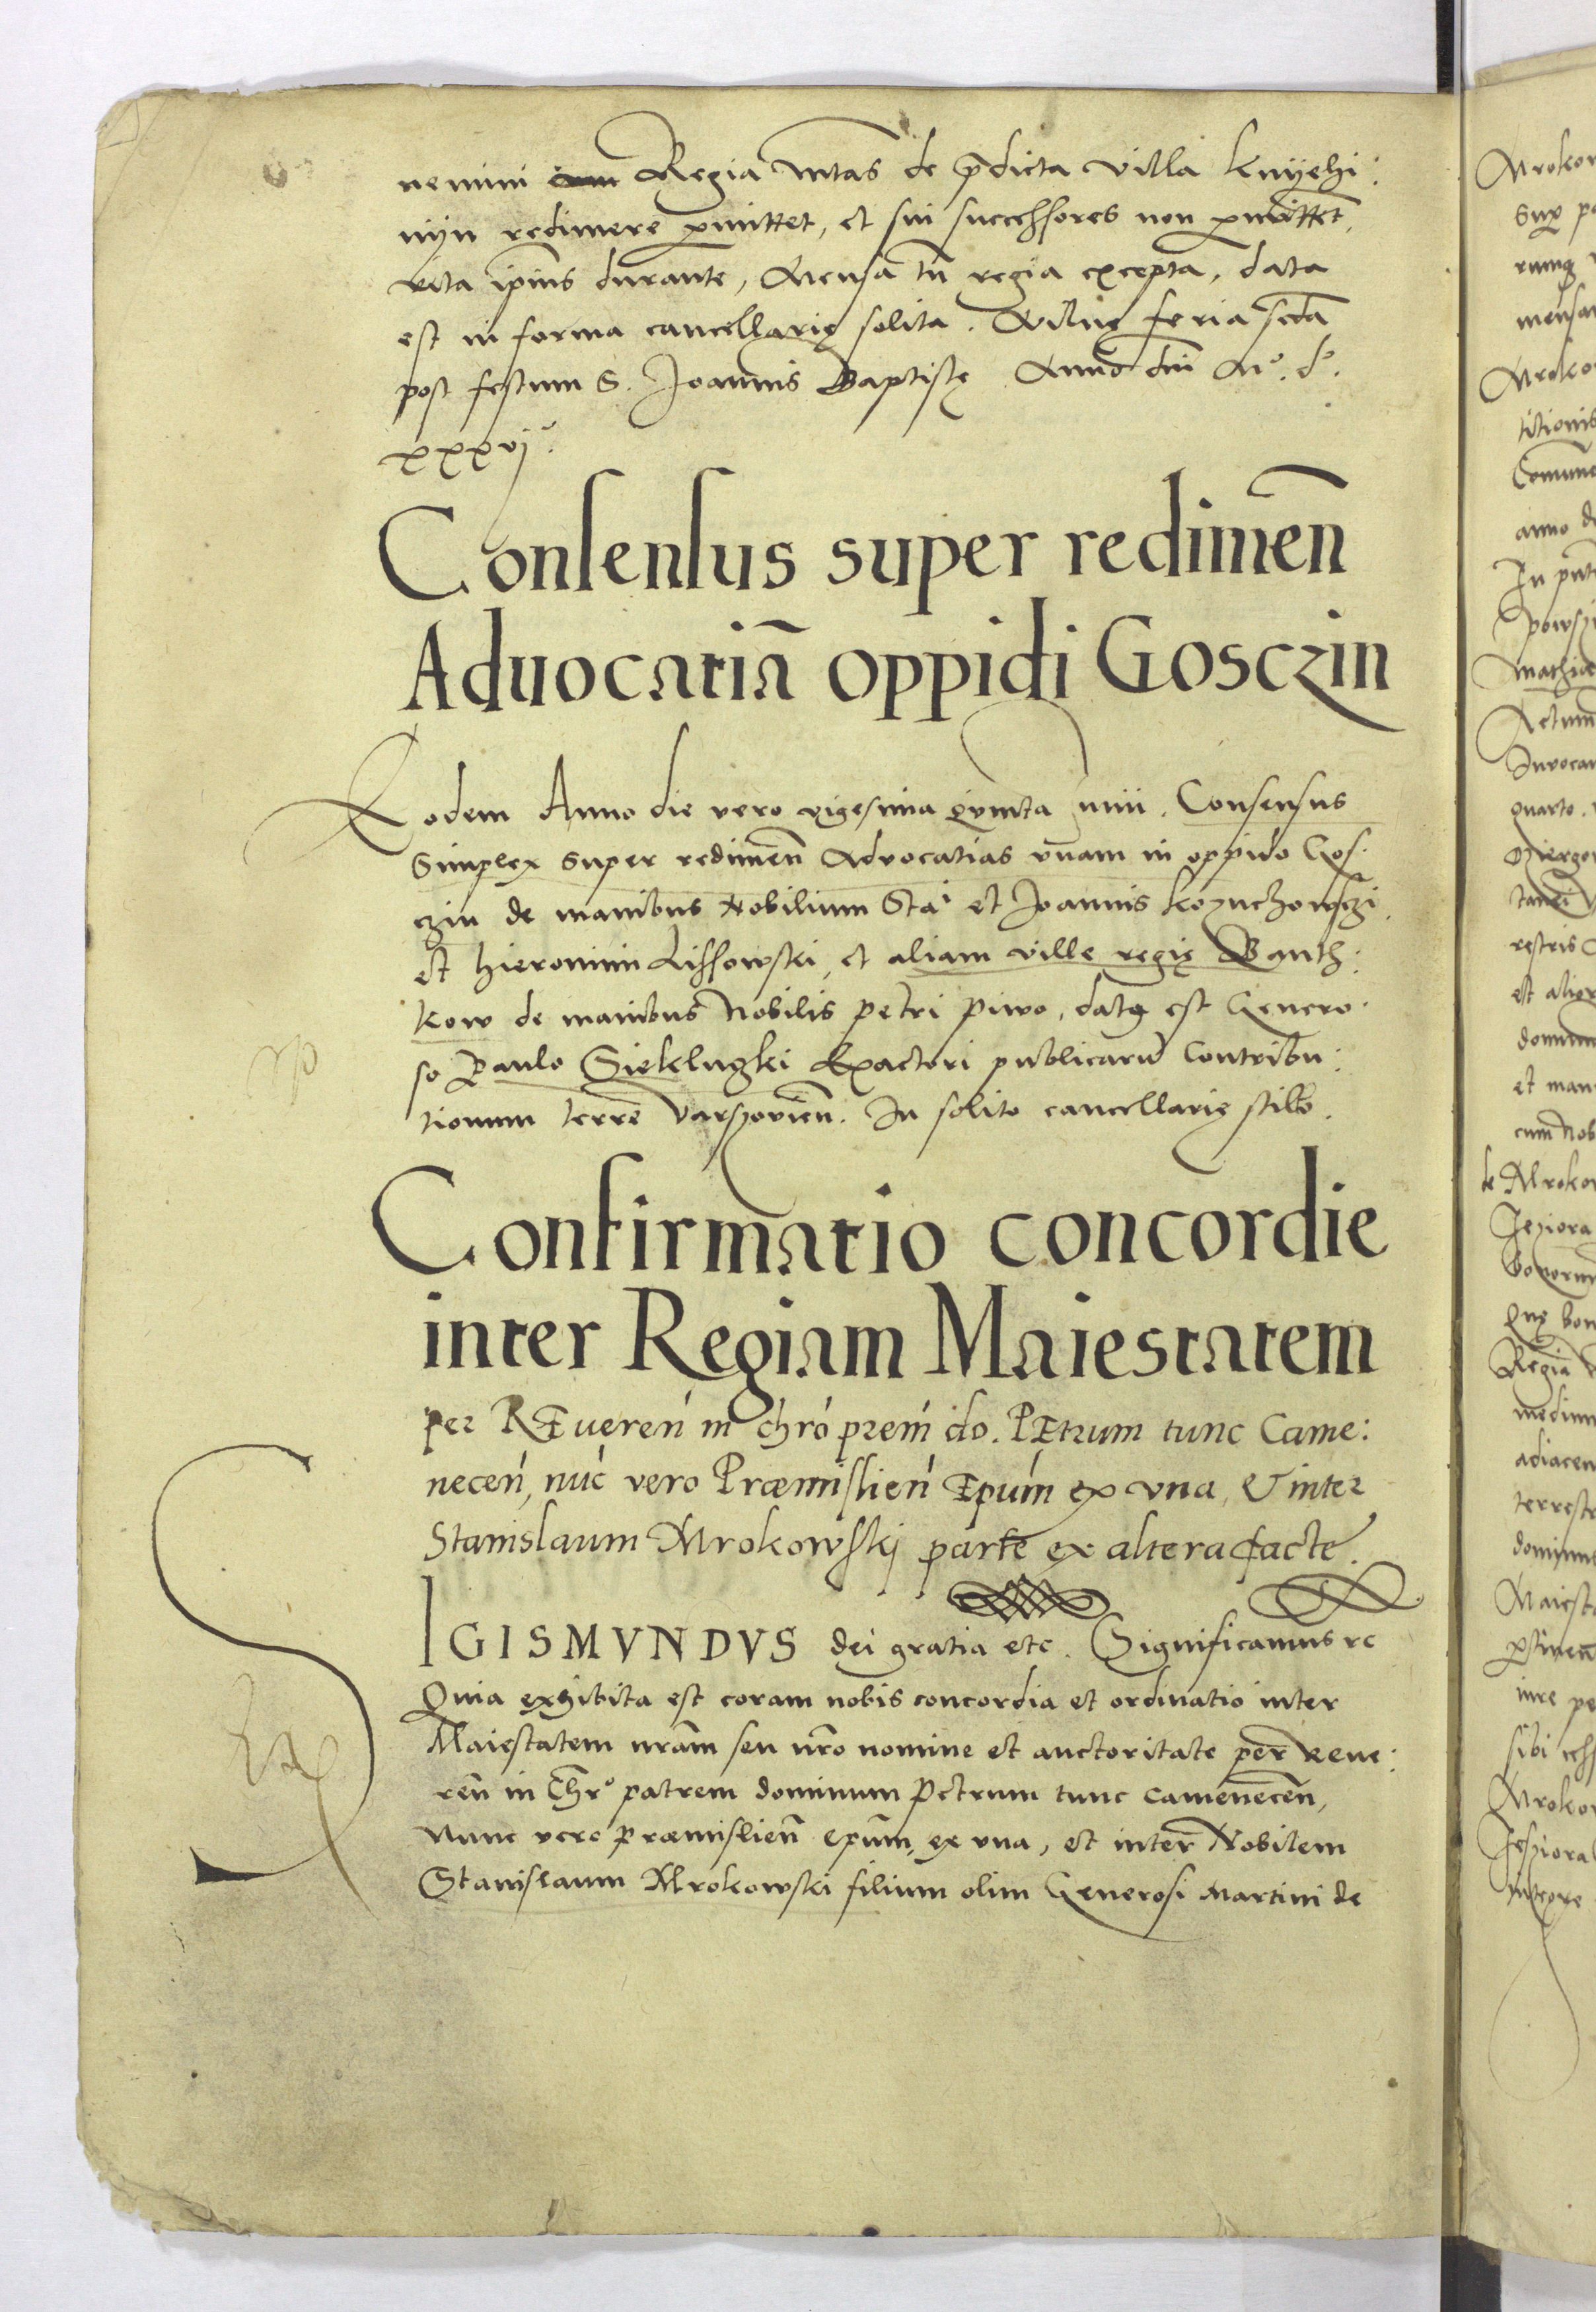 nemini Regia Mtas de p̄dicta villa Knÿehi:
nÿn redimere p̱mittet, et sui successores non p̱mittet,
vita ip̄ius durante, Mensa tn̄ regia excepta, data
est in forma cancellarię solita. Vilnę feria scd̄a
post festum S. Joannis Baptistę Anno dn̄i Mº. dº.
xxxvjº.
Consensus super redimen̄
Aduocatiā oppidi Gosczin
Eodem Anno die vero vigesima qvinta Junii. Consensus
Simplex super redimen̄ Advocatias vnam in oppido Gos:
czin de manibus Nobilium Stai et Joannis Kozuchowszki
et Hieronimi Lissowski, et aliam ville regię Banth:
kow de manibus Nobilis Petri Piwo, datq est Genero:
so Paulo Sieklugki Exactori publicaru Contribu:
tionum terre Varszovien̄. In solito cancellarię stilo.
Confirmatio concordie
inter Regiam Maiestatem
per REueren̄ in chrō prem̄ do. PEtrum tunc Came:
necen̄, nūc vero Præmislien̄ Epum̄ ex vna, & inter
Stanislaum Mrokowskj parte ex altera facte.
SIGISMVNDVS dei gratia etc. Significamus rc
Quia exhibita est coram nobis concordia et ordinatio inter
Maiestatem nr̄am seu nr̄o nomine et auctoritate per Reue:
ren̄ in Chrº patrem dominum Petrum tunc Camenecen̄,
Nunc vero Præmislien̄ Epum̄, ex vna, et inter Nobilem
Stanislaum Mrokowski filium olim Generosi Martini de